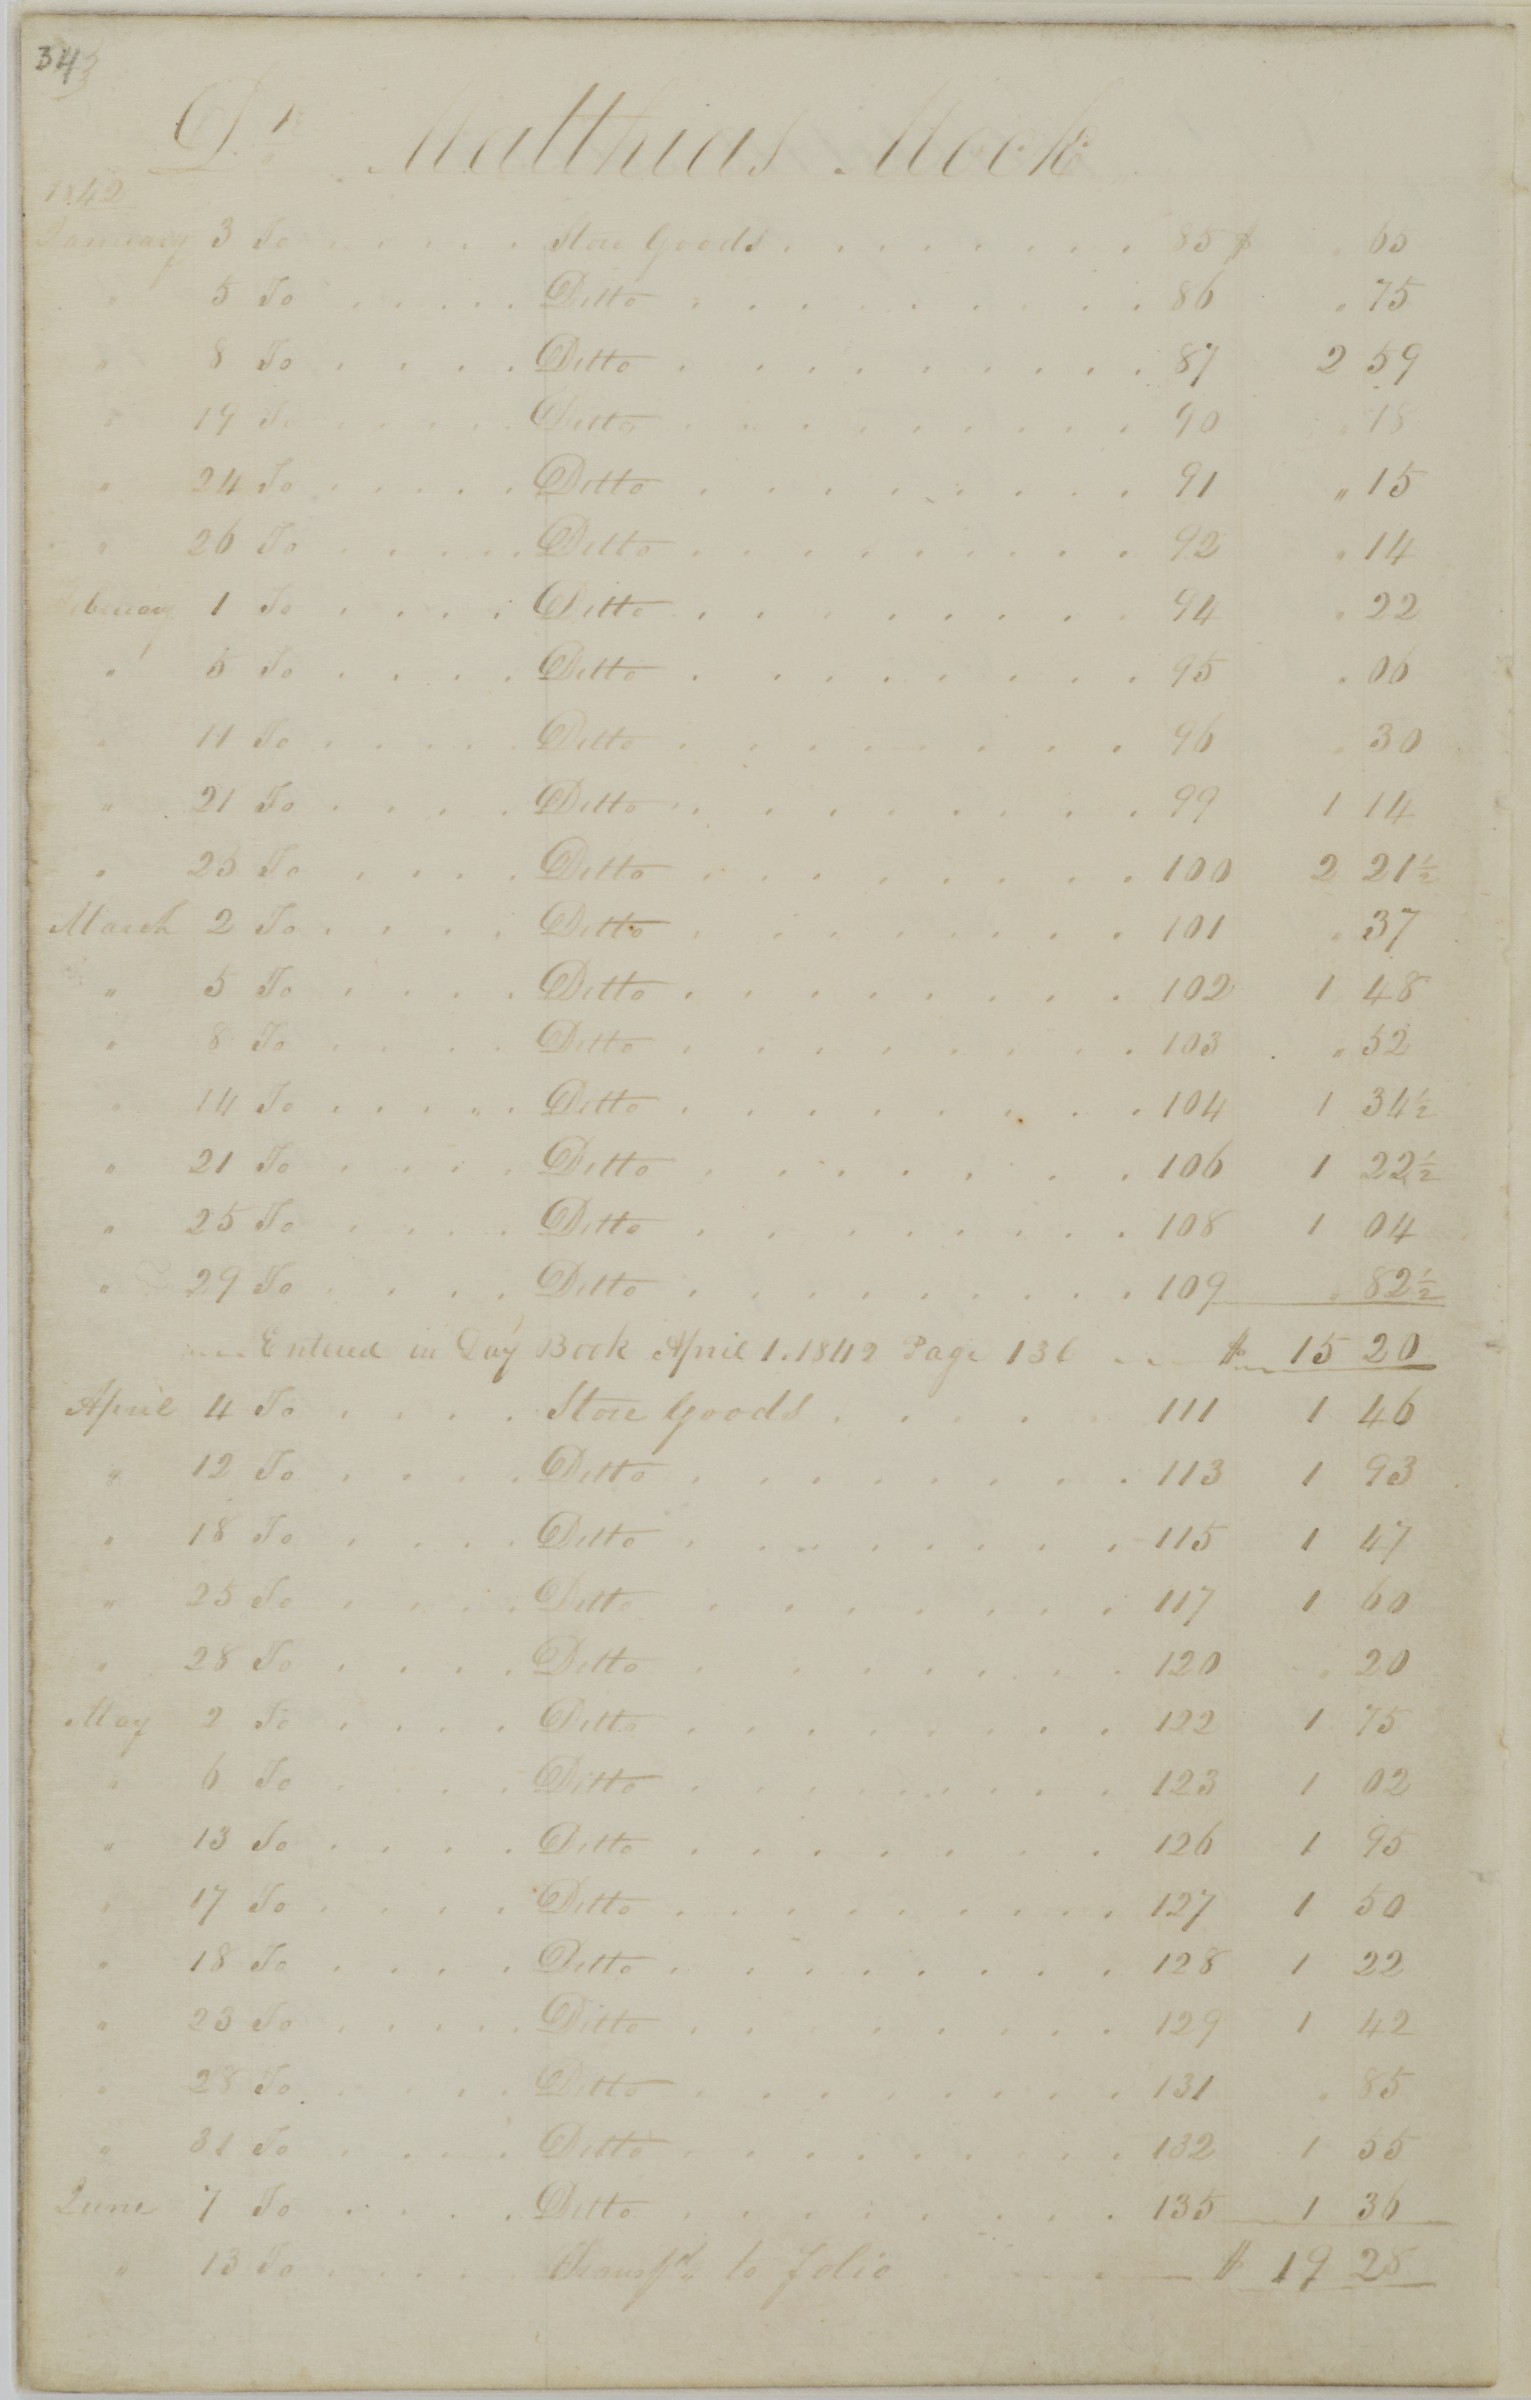 34
Dr Matthias Mock
1842
January 3 To . . . . . Store Goods . . . . . . . . . 85 $ " 65
" 5 To . . . . . Ditto . . . . . . . . . 86 " 75
" 8 To . . . . Ditto . . . . . . . . . 87 2 59
" 19 To . . . . . Ditto . . . . . . . . . 90 " 18
" 24 To . . . . . Ditto . . . . . . . . . 91 " 15
" 26 To . . . . . Ditto . . . . . . . . . 92 " 14
February 1 To . . . . Ditto . . . . . . . . . 94 " 22
" 5 To . . . . Ditto . . . . . . . . . 95 " 06
" 11 To . . . . . Ditto . . . . . . . . . 96 " 30
" 21 To . . . . Ditto . . . . . . . . . 99 1 14
" 25 To . . . . Ditto . . . . . . . . . 100 2 21½
March 2 To . . . . Ditto . . . . . . . . . 101 " 37
" 5 To . . . . Ditto . . . . . . . . . 102 1 48
" 8 To . . . . Ditto . . . . . . . . . 103 " 52
" 14 To . . . . . Ditto . . . . . . . . . 104 1 34½
" 21 To . . . . Ditto . . . . . . . . . 106 1 22½
" 25 To . . . . Ditto . . . . . . . . . 108 1 04
" 29 To . . . . Ditto . . . . . . . . . 109 " 82½
Entered in Day Book April 1. 1842 Page 136 $ 15 20
April 4 To . . . . Store Goods . . . . . 111 1 46
" 12 To . . . . Ditto . . . . . . . . 113 1 93
" 18 To . . . . Ditto . . . . . . . . 115 1 47
" 25 To . . . . Ditto . . . . . . . . 117 1 60
" 28 To . . . . Ditto . . . . . . . . 120 " 20
May 2 To . . . . Ditto . . . . . . . . 122 1 75
" 6 To . . . . Ditto . . . . . . . . 123 1 02
" 13 To . . . . Ditto . . . . . . . . 126 1 95
" 17 To . . . . Ditto . . . . . . . . . 127 1 50
" 18 To . . . . Ditto . . . . . . . . . 128 1 22
" 23 To . . . . . Ditto . . . . . . . . . 129 1 42
" 28 To . . . . Ditto . . . . . . . . . 131 " 85
" 31 To . . . . Ditto . . . . . . . . . 132 1 55
June 7 To . . . . Ditto . . . . . . . . 135 1 36
" 13 To . . . . . Transfd to folio $ 19 28